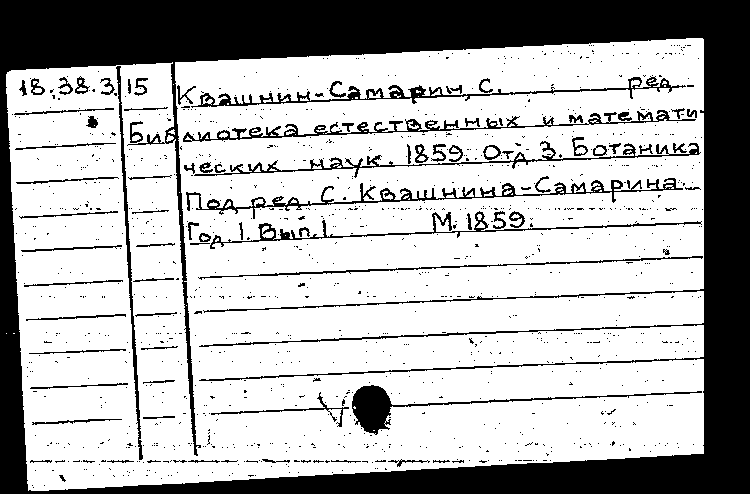 18.38.3.15 Квашнин-Самарин, С. ред
Библиотека естественных и математи-
ческих наук. 1859. Отд. 3. Ботаника
Под ред. С. Квашнина-Самарина.
Год. 1. Вып. 1. М., 1859.